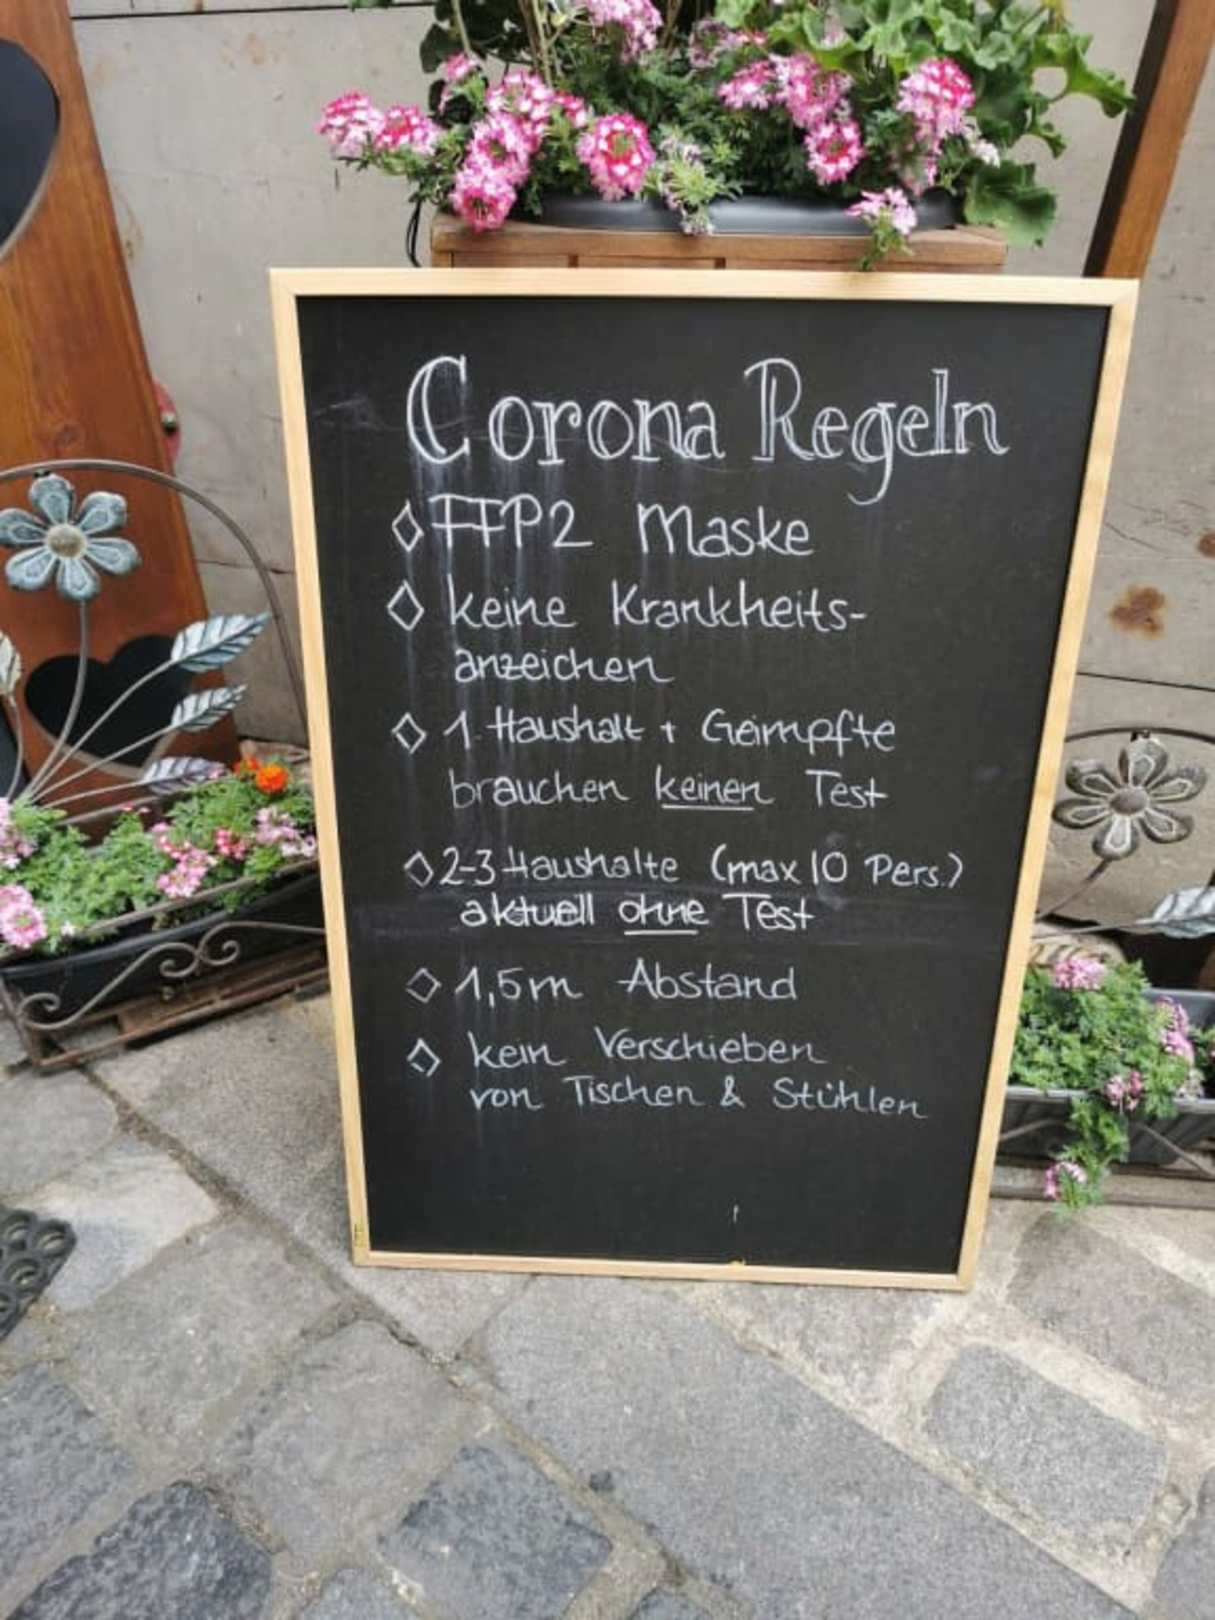 Corona Regeln
◇ FFP2 Maske
◇ keine Krankheits-
anzeichen
◇ 1 Haushalt + Geimpfte
brauchen keinen Test
◇ 2-3 Haushalte (max 10 Pers.)
aktuell ohne Test
◇ 1,5m Abstand
◇ kein Verschieben
von Tischen & Stühlen